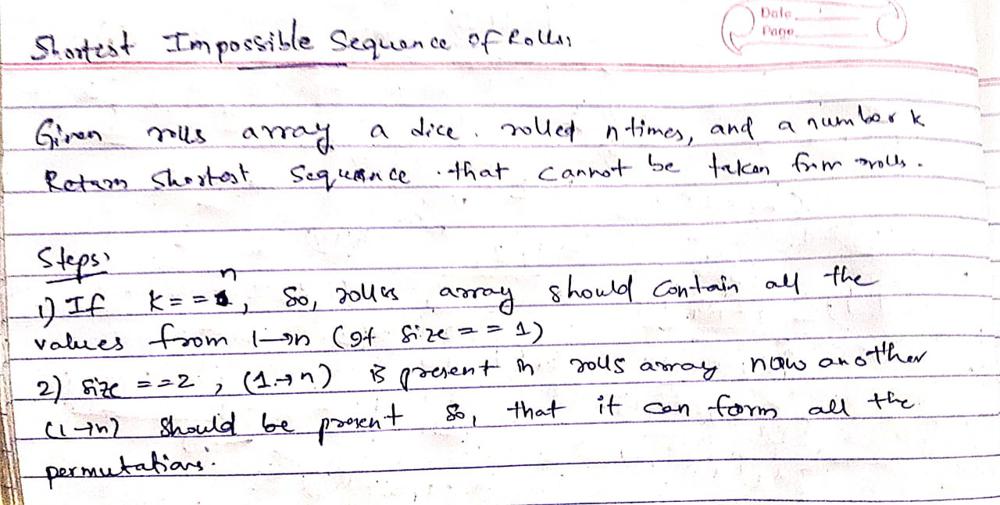 Shortest Impossible Sequence of Rolls:
Date
Page
Given rolls array a dice. rolled n times, and a number k
Return Shortest Sequence .that cannot be taken from rolls.
Steps:
1) If k==n, So, rolls array should contain all the
values from 1→n (if size == 1)
2) size ==2, (1→n) is present in rolls array now another
(1→n) should be present so, that it can form all the
permutations.